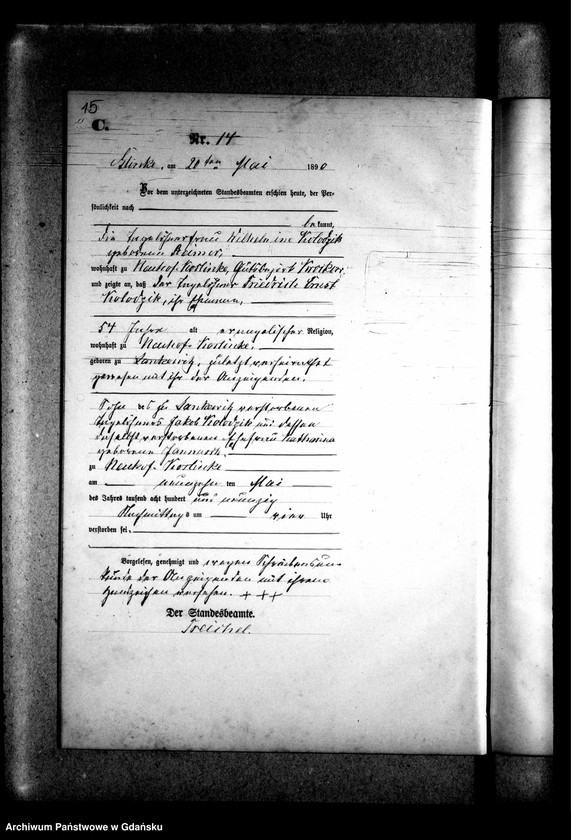 15
C.
Nr. 14
am 20ten Mai 1890
Vor dem unterzeichneten Standesbeamten erschien heute, der Per-
sönlichkeit nach
bekannt,
die Tagelöhnerfrau Wilhelmine Kolodzik
geborene Reimer,
wohnhaft zu Neuhof-Koslinke, Gutsbezirk
und zeigte an, daß der Tagelöhner Friedrich Ernst
Kolodzik, ihr Ehemann,
54 Jahre alt evangelischer Religion,
wohnhaft zu Neuhof-Koslinke,
geboren zu Sankewitz, zuletzt verheirathet
gewesen mit ihr der Anzeigenden,
Sohn des zu Sankewitz verstorbenen
Tagelöhners Jakob Kolodzik und dessen
daselbst verstorbenen Ehefrau Katharina
geborenen
zu Neuhof-Koslinke
am neunzehn ten Mai
des Jahres tausend acht hundert und neunzig
Nachmittags um vier Uhr
verstorben sei.
Vorgelesen, genehmigt und wegen Schreibensun-
kunde der Anzeigenden mit ihrem
Handzeichen versehen. + + +
Der Standesbeamte.
Treichel.
Archiwum Państwowe w Gdańsku